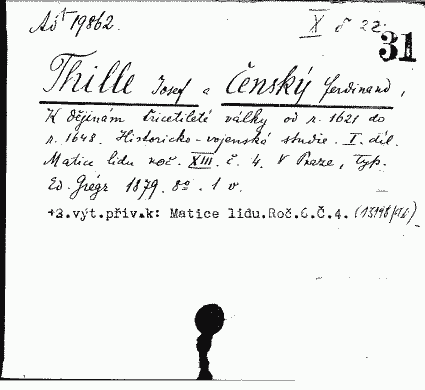 Aš† 19862.
X d 22
31
Thille Josef a Čenský Ferdinand,
K dějinám třicetileté války od r. 1621 do
r. 1648. Historicko-vojenská studie. I. díl.
Matice lidu roč. XIII. č. 4. V Praze, Typ.
Ed. Grégr 1879. 8º. 1 v.
+2.výt.přiv.k: Matice lidu.Roč.6.Č.4. (13198/VI6)